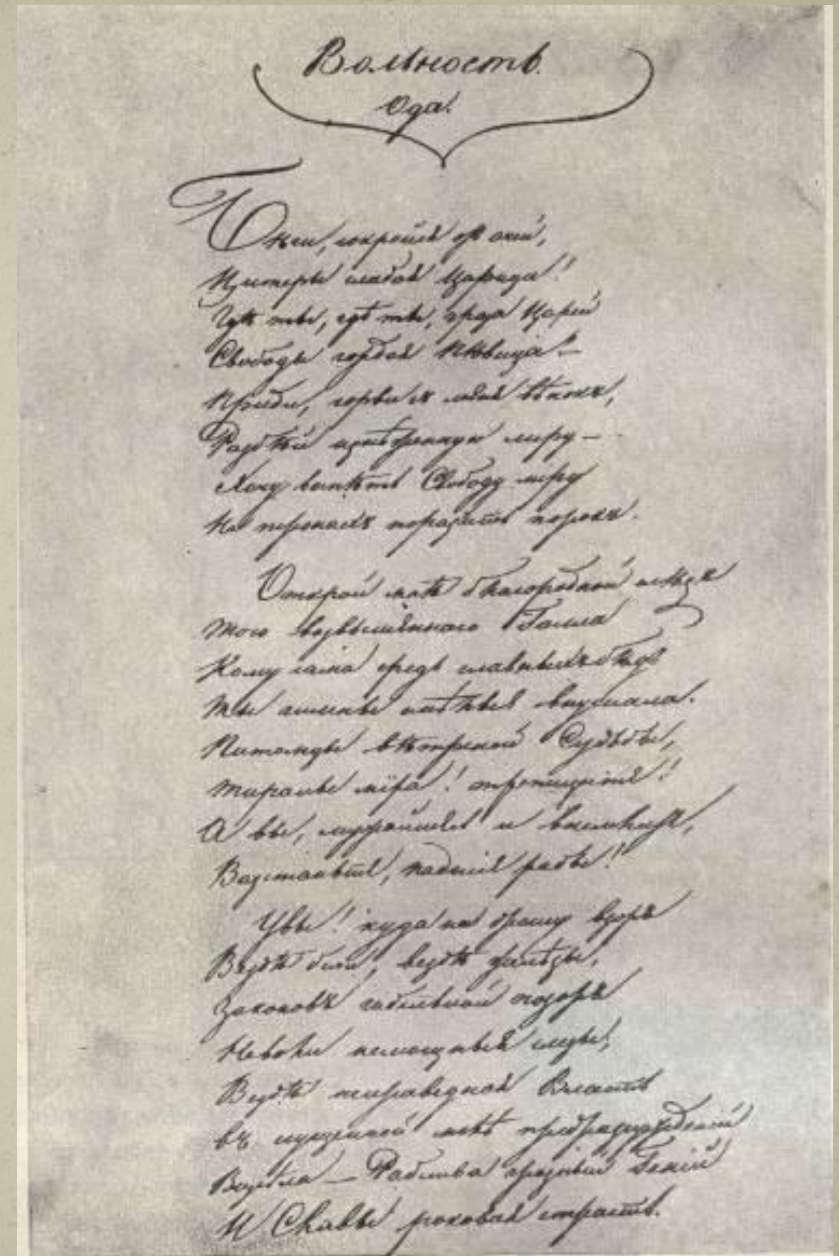 Вольность.
Ода.
Бѣги, сокройся отъ очей,
Цитеры слабая Царица!
Гдѣ ты, гдѣ ты, гроза Царей
Свободы гордая Пѣвица? —
Приди, сорви съ меня вѣнокъ,
Разбей изнѣженную лиру —
Хочу воспѣть Свободу міру
На тронахъ поразить порокъ.
Открой мнѣ благородный слѣдъ
Того возвышеннаго Галла
Кому сама средь славныхъ бѣдъ
Ты гимны смѣлыя внушала.
Питомцы вѣтреной Судьбы,
Тираны міра! трепещите!
А вы, мужайтесь и внемлите,
Возстаньте, падшіе рабы!
Увы! куда ни брошу взоръ
Вездѣ бичи, вездѣ желѣзы,
Законовъ гибельный позоръ
Неволи немощныя слезы;
Вездѣ неправедная Власть
Въ сгущенной мглѣ предразсужденій
Возсѣла — Рабства грозный Геній
И Славы роковая страсть.